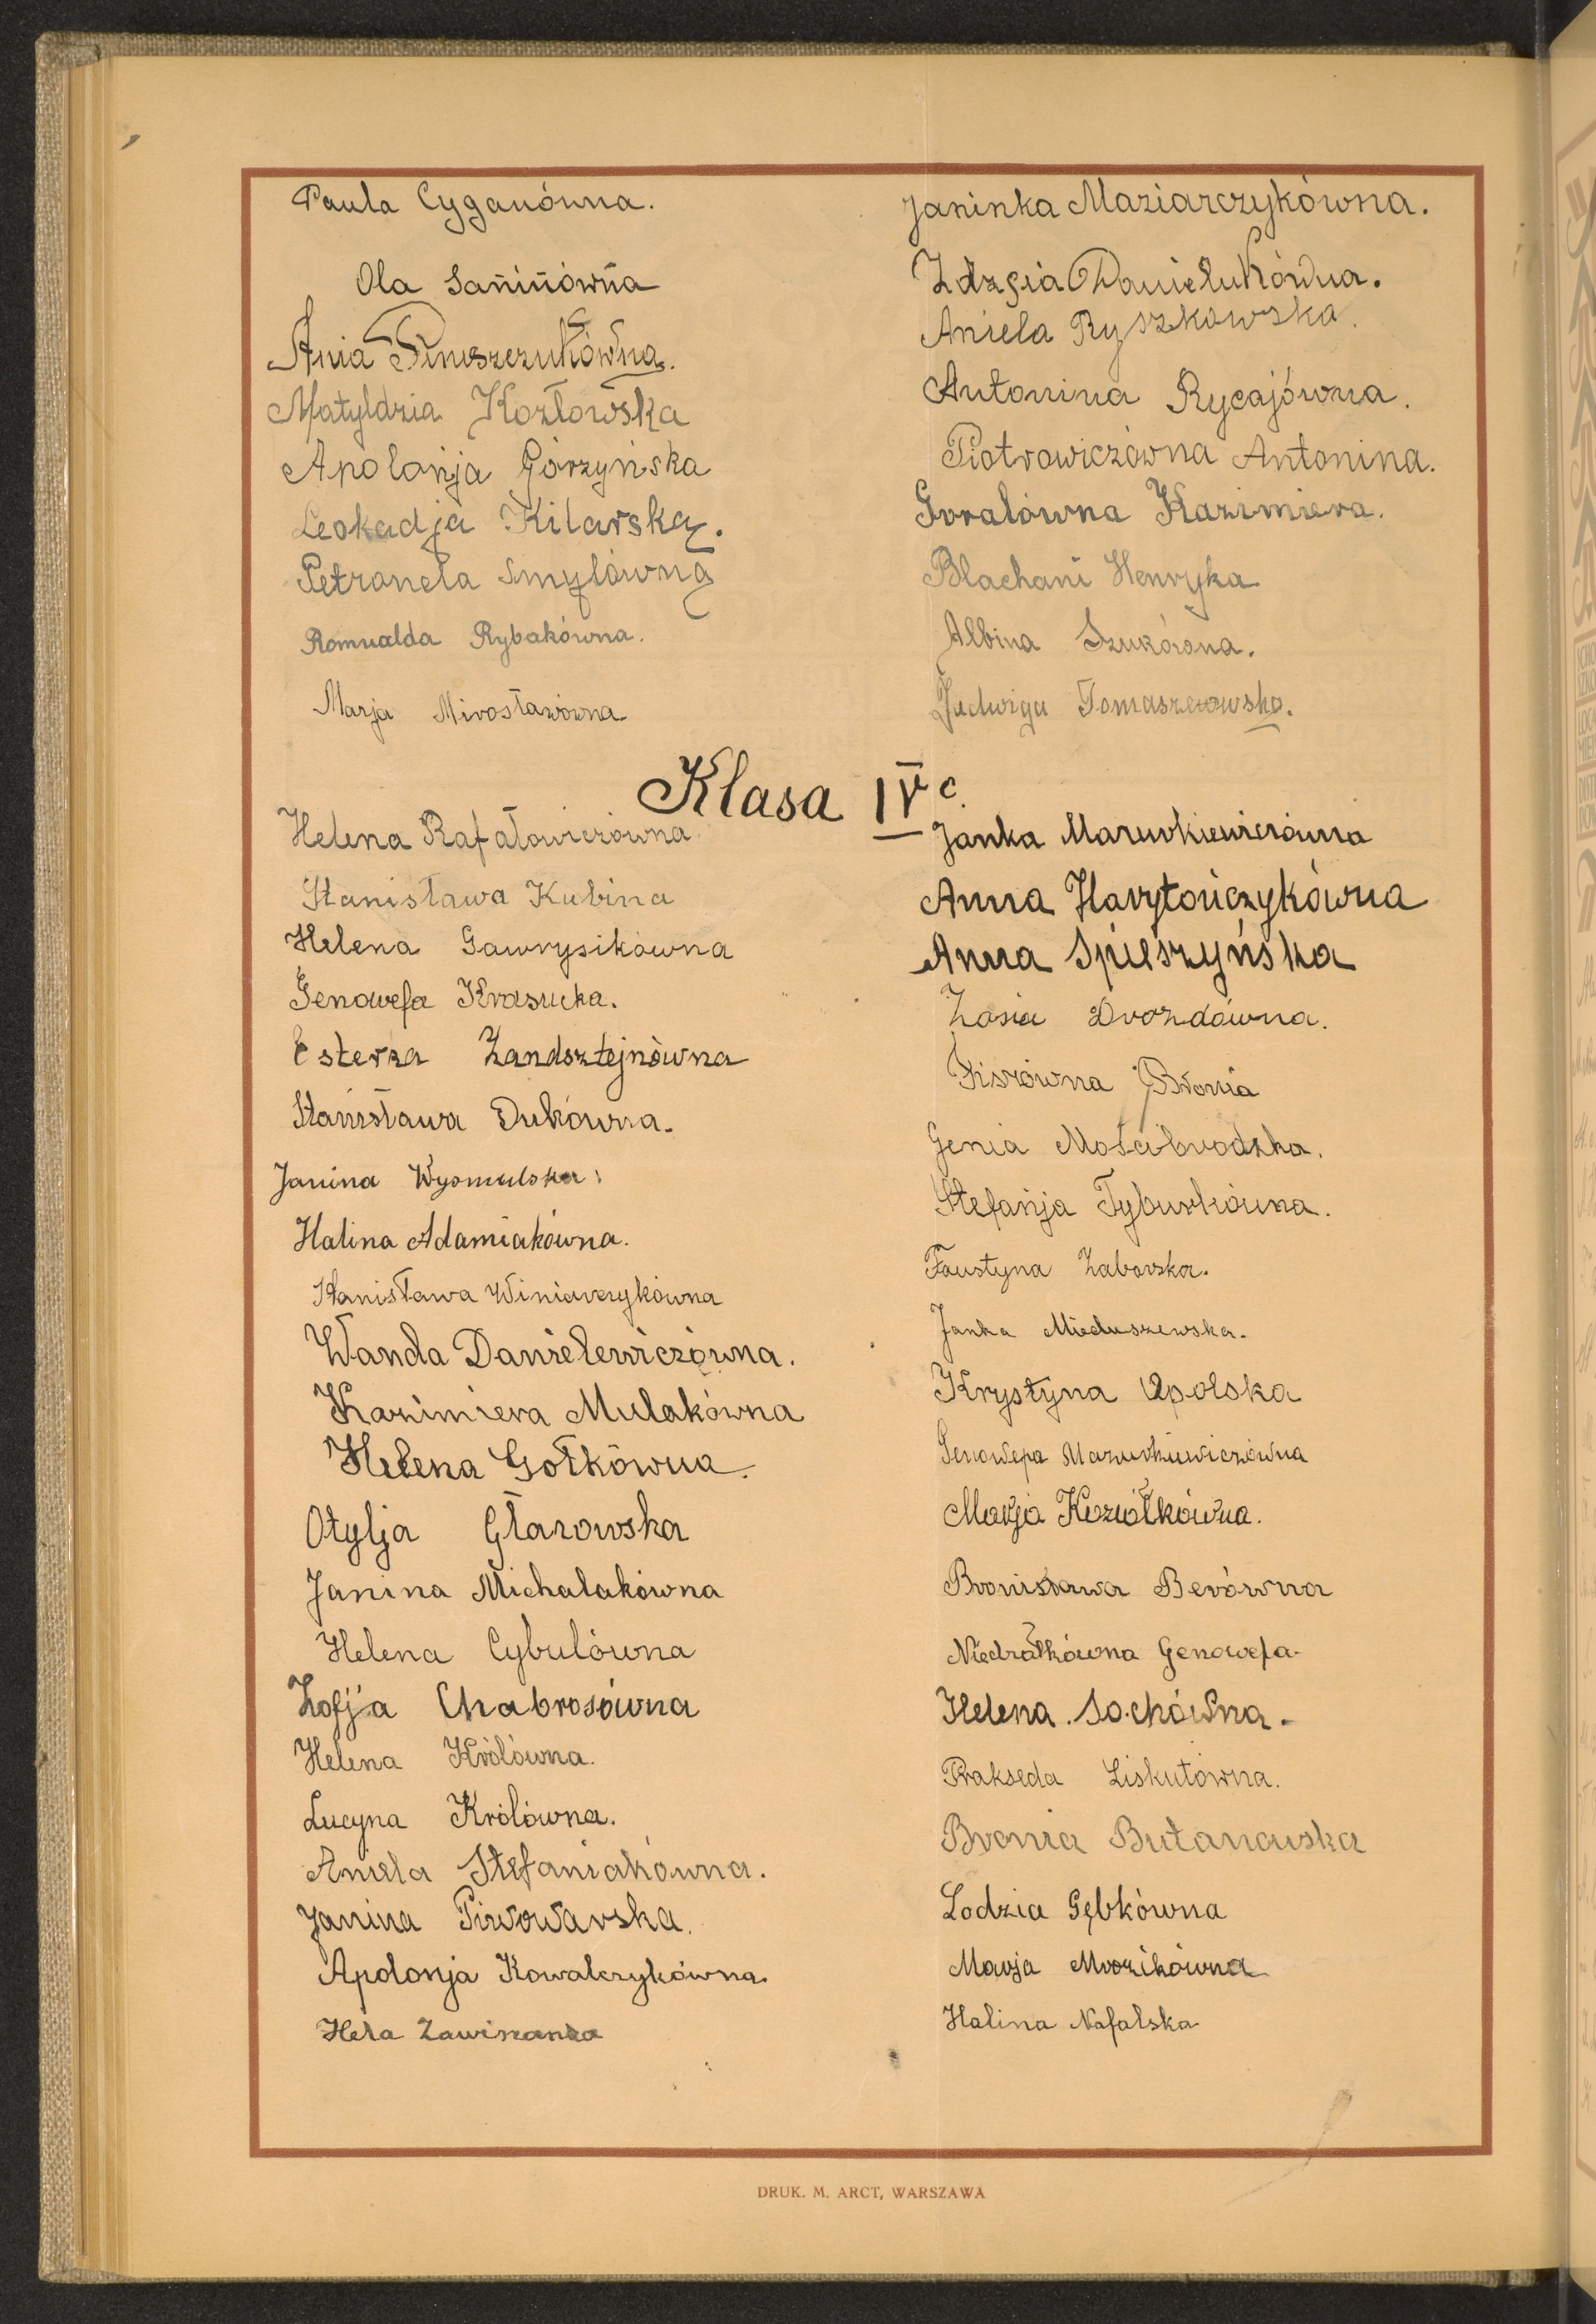 Paula Cyganówna.
Ola Saninówna
Ania
Matyldzia Kozłowska
Apolonja Górzyńska
Leokadja Kilarska.
Petronela Smylówna
Romualda Rybakówna.
Marja Mirosławówna
Janinka Maziarczykówna.
Zdzisia Danielukówna.
Aniela Ryszkowska.
Antonina Rycajówna.
Piotrowiczówna Antonina.
Goralówna Kazimiera.
Blachani Henryka
Albina Szukówna.
Jadwiga Tomaszewska.
Klasa IV c.
Helena Rafałowiczówna
Stanisława Kubina
Helena Gawrysikówna
Genowefa Krasucka.
Esterza Zandsztejnówna
Stanisława Dukówna.
Janina Wysmulska
Halina Adamiakówna.
Stanisława Winiarczykówna
Wanda Danielewiczówna.
Kazimiera Mulakówna
Helena Gołkówna.
Otylja Głazowska
Janina Michalakówna
Helena Cybulówna
Zofja Chabrosówna
Helena Królówna.
Lucyna Królówna.
Aniela Stefaniakówna.
Janina Piwowarska.
Apolonja Kowalczykówna.
Hela Zawiszanka
Janka Mazurkiewiczówna
Anna Harytończykówna
Anna Spieszyńska
Zosia Drozdówna.
Fiszówna Bronia
Genia Mościbrodzka.
Stefanja Tyburkówna.
Faustyna Zaborska.
Janka Mieduszewska.
Krystyna Opolska
Genowefa Mazurkiewiczówna
Marja Koziołkówna.
Bronisława Berówna
Niedziałkówna Genowefa.
Helena Sochówna.
Prakseda Liskutówna.
Bronia Bułanowska
Lodzia Gębkówna
Marja Mrozikówna
Halina Nafalska
DRUK. M. ARCT, WARSZAWA